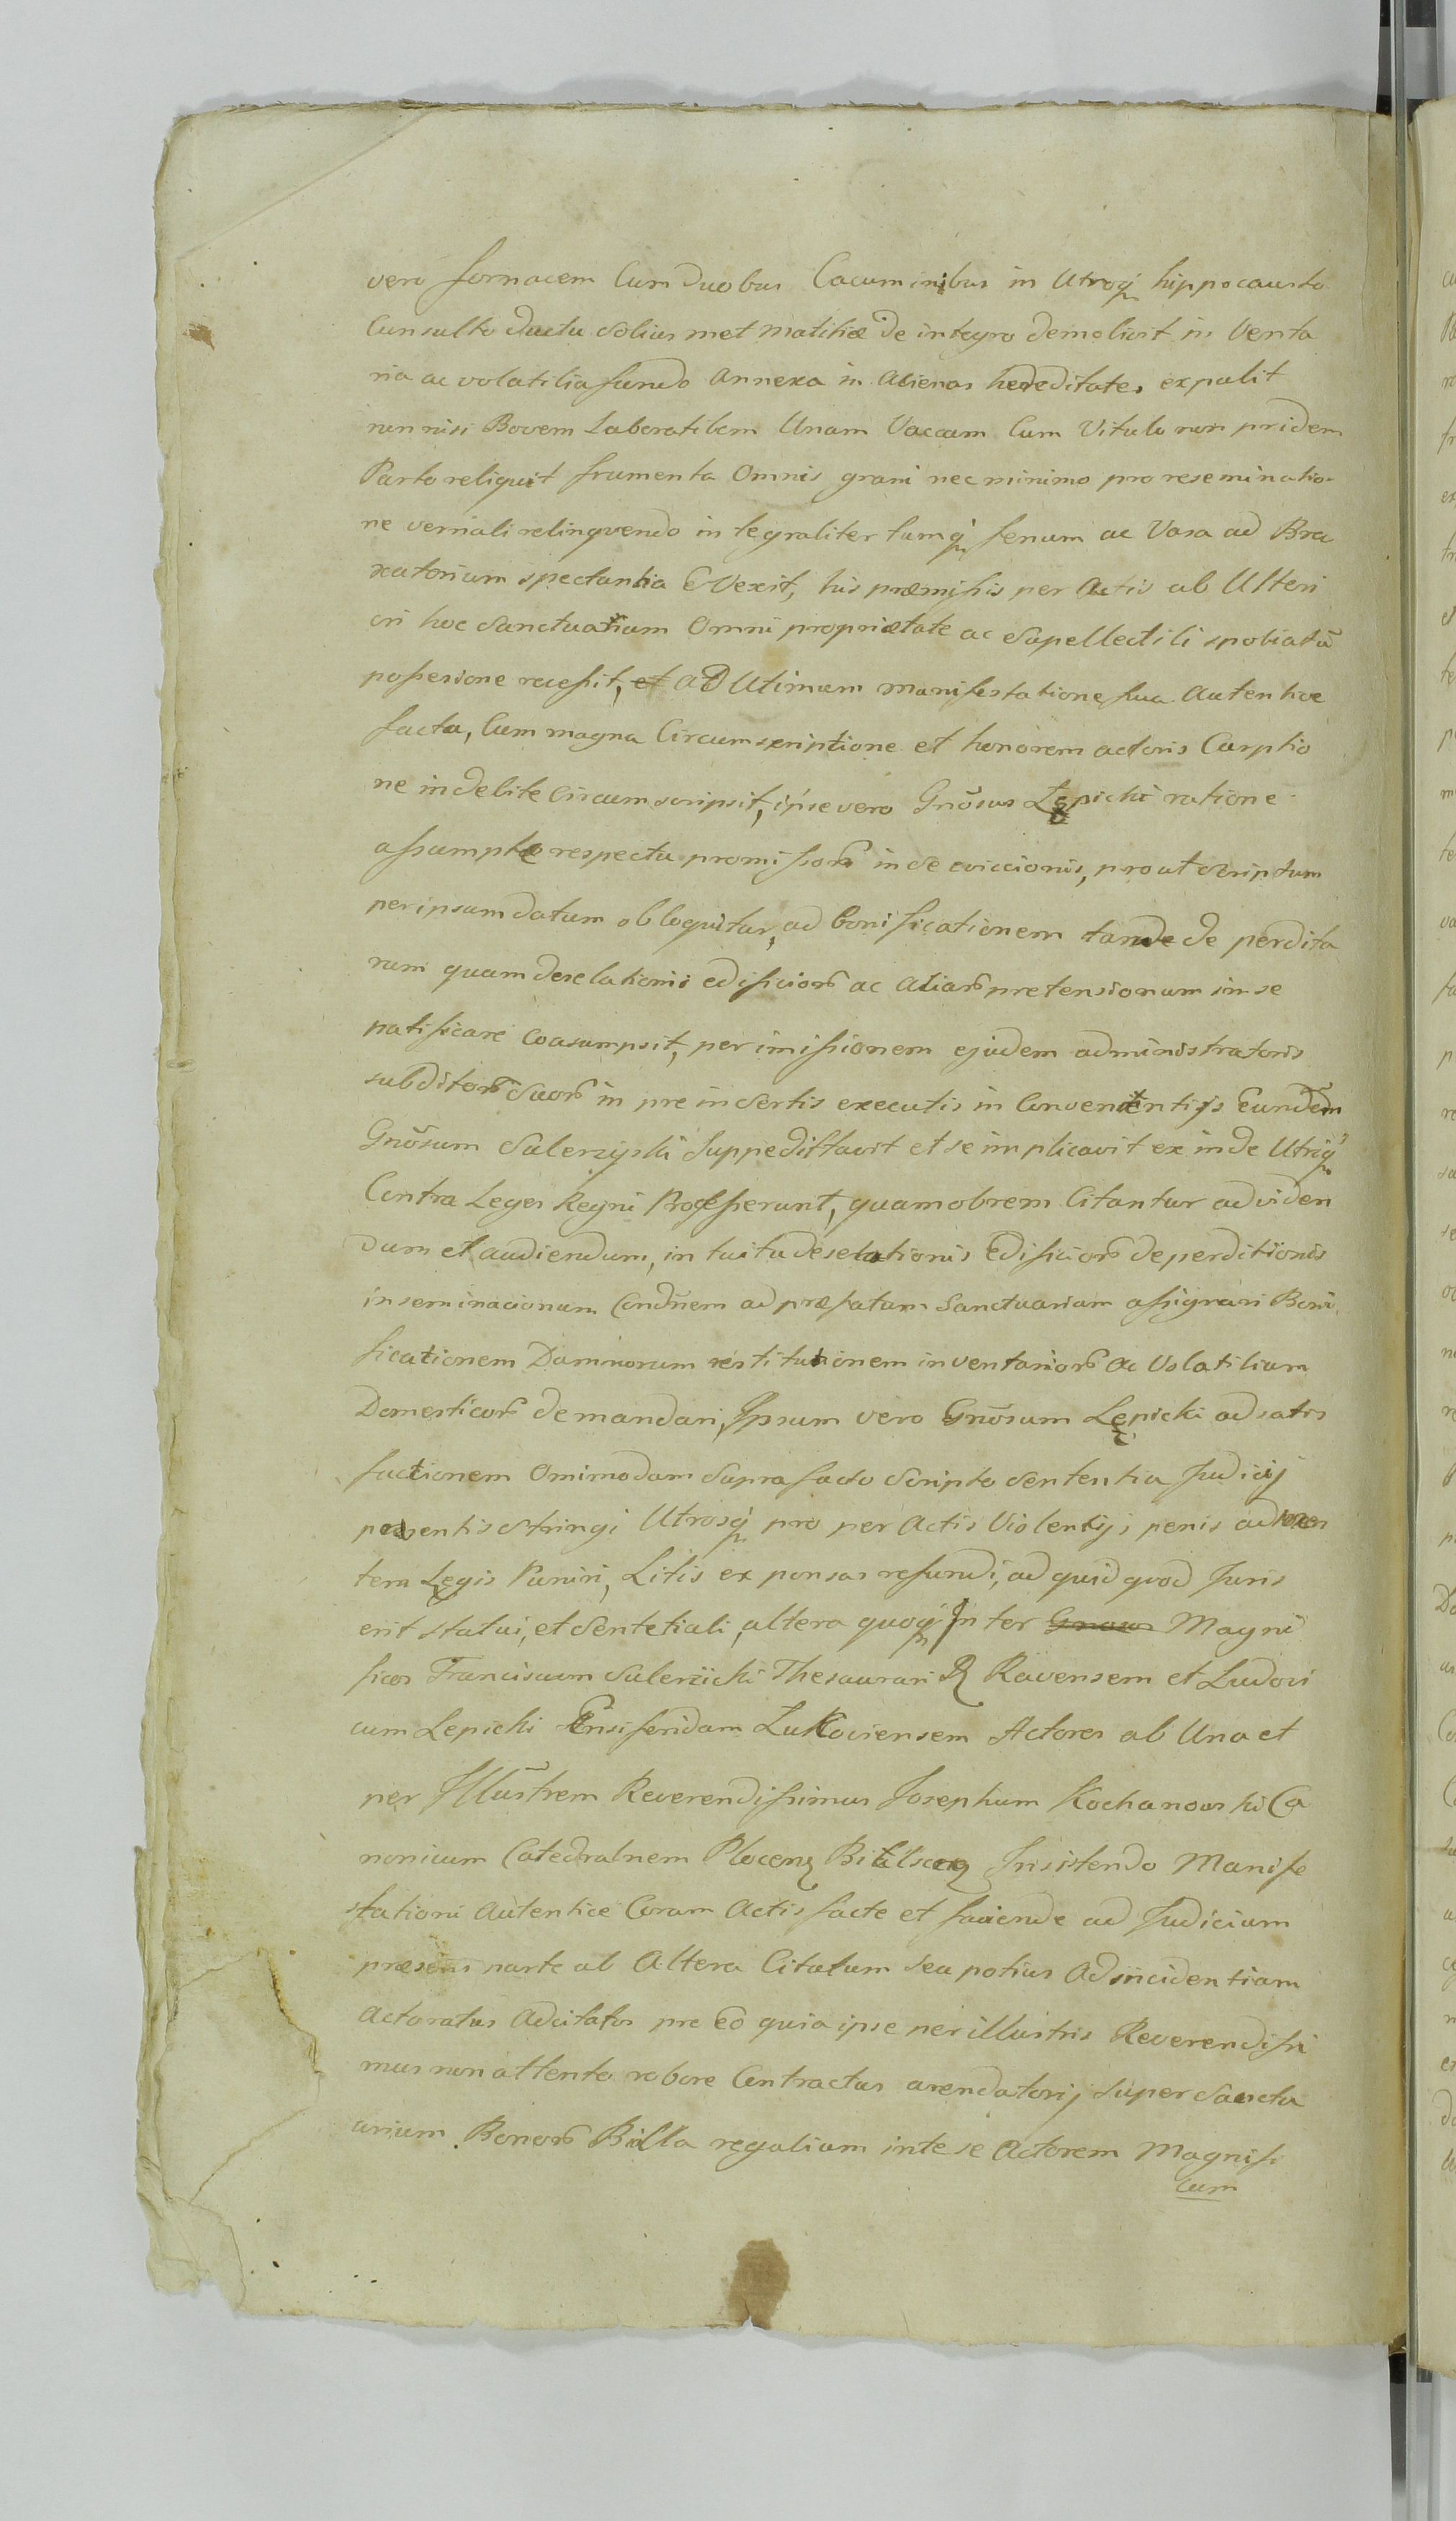 vero fornacem Cum duobus Cacuminibus in Utroq hippocausto
Cunsulto ductu solius met malitiæ de integro demolivit in Venta
ria ac volatilia fundo annexa in alienas hereditates expulit
non nisi Bovem Laboratibem Unam Vaccam Cum Vitulo non pridem
Parto reliquit frumenta Omnis grani nec minimo pro reseminatio-
ne vernali relinqvendo integraliter tumq fenum ac Vasa ad Bra
xatorium spectantia Evexit, his præmissis per Actis ab Ulteri
ori hoc Sanctuarium Omni proprietate ac Supellectili spoliatū
possesione recessit, et AD Utimum manifestatione sua Autentice
facta, Cum magna Circumscriptione et honorem actoris Carptio
ne indebite circumscripsit, ipse vero Gnōsus Lępicki ratione
assumptæ respectu promissor in se eviccionis, prout Scriptum
per ipsum datum obloquitur, ad bonificationem tande deperdita
rum quam desolationis edificior ac aliar pretensionum in se
ratificare coasumpsit, per imissionem ejudem administratoris
subditor Suor in pre insertis executis in Convenientijs Eundem
Gnōsum Salerzyski Suppeditavit et se implicavit ex inde Utriq
Contra Leges Regni Processerunt, quamobrem Citantur ad viden
dum et audiendum, intuitu desolationis Edificior deperditionis
inseminacionum Condūnem ad præfatam Sanctuariam assignari Boni
ficationem Damnorum restitutionem inventarior ac Volatilium
Domesticor demandari, Ipsum vero Gnōsum Lępicki ad satis
factionem Omimodam Supra facto Scripto Sententia Judicij
presentis stringi Utrosq pro per Actis Violentijs penis ad men
tem Legis Puniri, Litis expensas refundi, ad quid qvod Juris
erit statui, et Sentetiali, altera quoq Inter Gnosos Magni
ficos Franciscum Salerzicki Thesaurari Ravensem et Ludovi
cum Lepicki Ensiferidam Lukoviensem Actores ab Una et
per Illustrem Reverendissimus Josephum Kochanowski Ca
nonicum Catedralnem Plocens Insistendo Manife
stationi Autentice Coram Actis facte et faciende ad Judicium
præsens parte ab Altera Citatum Seu potius Ad incidentiam
Actoratus Adcitatos pre eo quia ipse perillustris Reverendissi
mus non attento robore Contractus arendatorij Super Sanctu
arium Bonor Bialla regalium inte se Actorem Magnifi
cum